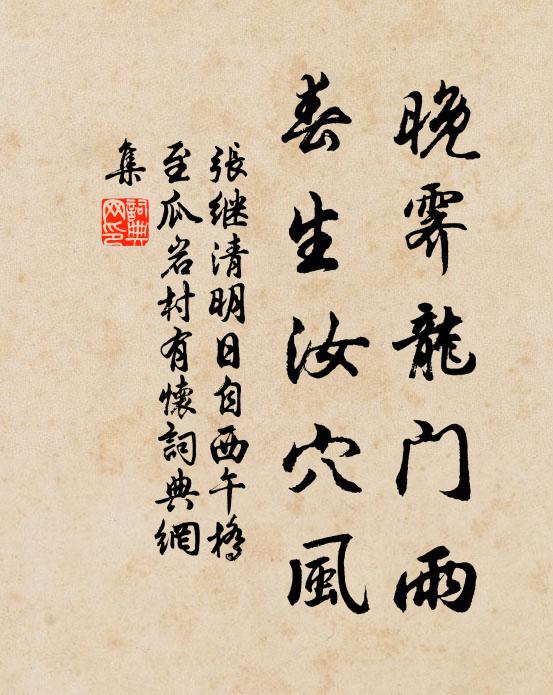 晚霁龍门雨
春生汝穴風
張继清明日自西午橋
至瓜岩村有懷詞典網
集
詞典
网印